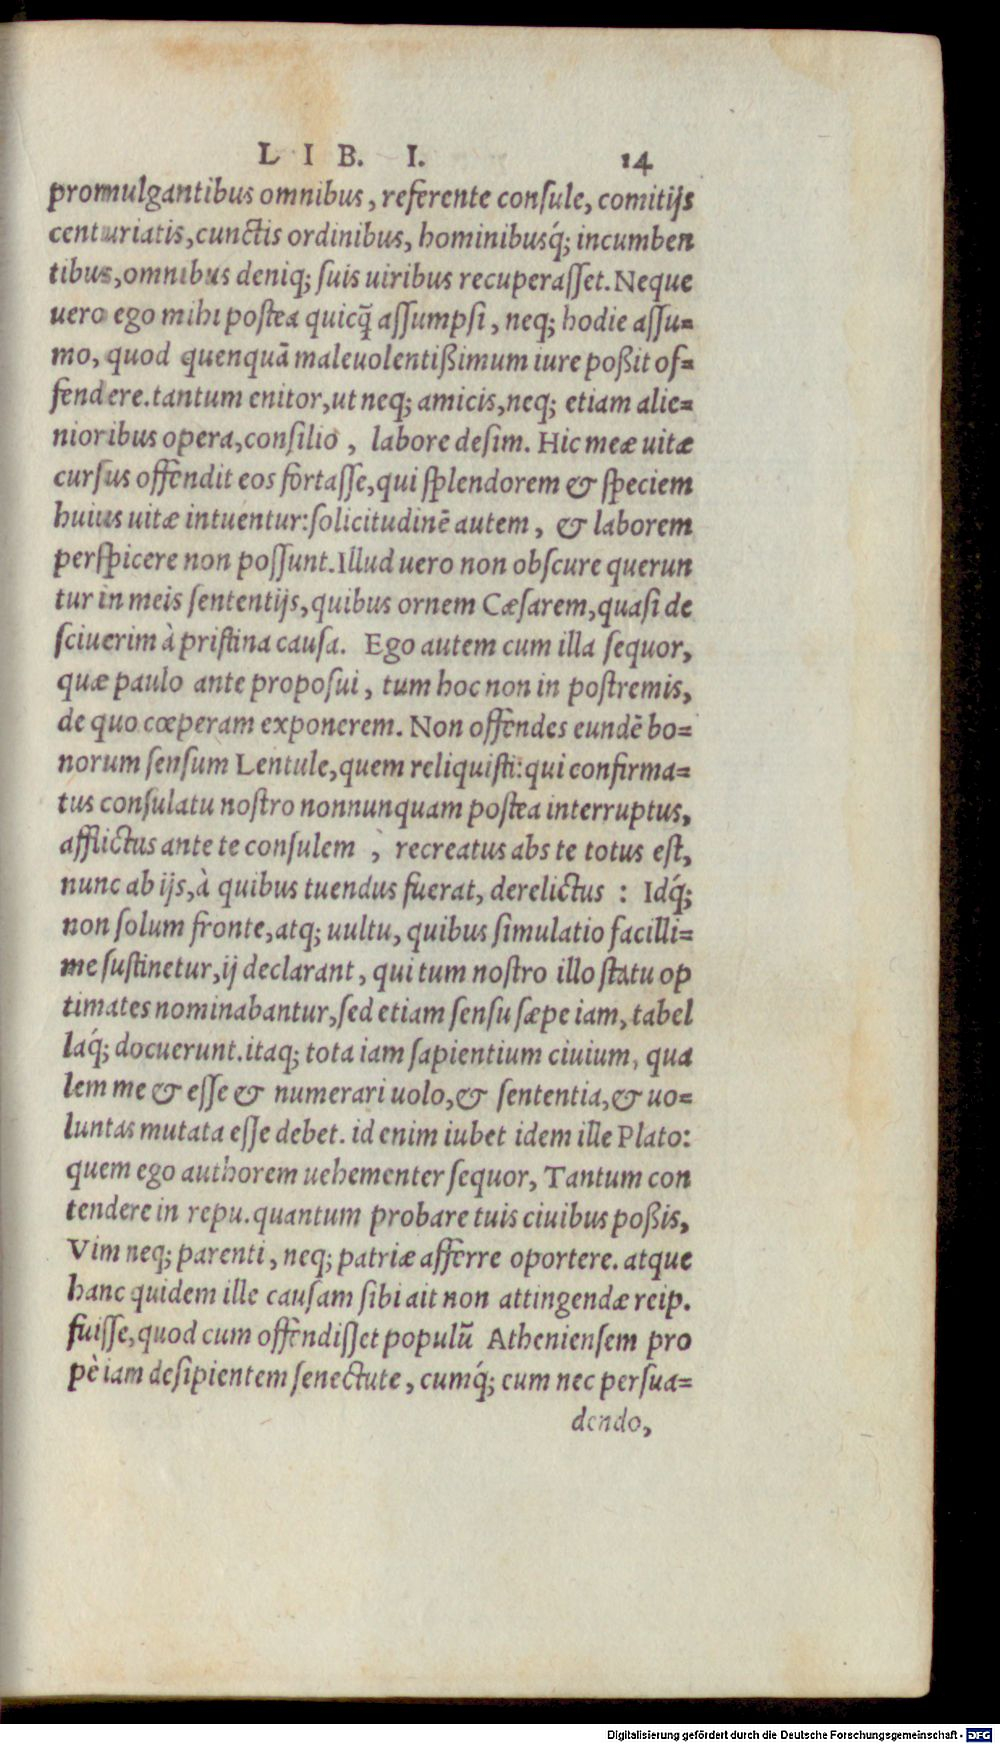 LIB. I. 14
promulgantibus omnibus, referente consule, comitijs
centuriatis, cunctis ordinibus, hominibusq́; incumben
tibus, omnibus deniq; suis uiribus recuperasset. Neque
uero ego mihi postea quicq̃ assumpsi, neq; hodie assu=
mo, quod quenquā maleuolentißimum iure poßit of=
fendere. tantum enitor, ut neq; amicis, neq; etiam alie=
nioribus opera, consilio, labore desim. Hic meæ uitæ
cursus offendit eos fortasse, qui splendorem & speciem
huius uitæ intuentur: solicitudinē autem, & laborem
perspicere non possunt. Illud uero non obscure querun
tur in meis sententijs, quibus ornem Cæsarem, quasi de
sciuerim à pristina causa. Ego autem cum illa sequor,
quæ paulo ante proposui, tum hoc non in postremis,
de quo cœperam exponerem. Non offendes eundē bo=
norum sensum Lentule, quem reliquisti: qui confirma=
tus consulatu nostro nonnunquam postea interruptus,
afflictus ante te consulem, recreatus abs te totus est,
nunc ab ijs, à quibus tuendus fuerat, derelictus: Idq́;
non solum fronte, atq; uultu, quibus simulatio facilli=
me sustinetur, ij declarant, qui tum nostro illo statu op
timates nominabantur, sed etiam sensu sæpe iam, tabel
laq́; docuerunt. itaq; tota iam sapientium ciuium, qua
lem me & esse & numerari uolo, & sententia, & uo=
luntas mutata esse debet. id enim iubet idem ille Plato:
quem ego authorem uehementer sequor, Tantum con
tendere in repu. quantum probare tuis ciuibus poßis,
Vim neq; parenti, neq; patriæ afferre oportere. atque
hanc quidem ille causam sibi ait non attingendæ reip.
fuisse, quod cum offendisset populū Atheniensem pro
pè iam desipientem senectute, cumq́; eum nec persua=
dendo,
Digitalisierung gefördert durch die Deutsche Forschungsgemeinschaft - DFG